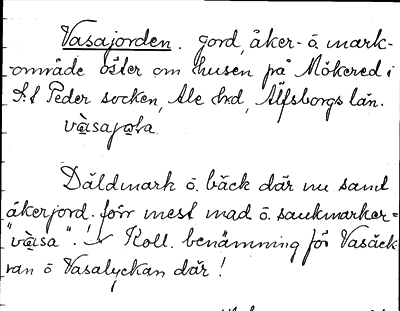 Vasajorden. Jord, åker- o mark-
område öster om husen på Mökered i
S:t Peder socken, Ale hd, Älfsborgs län.
Däldmark o bäck där nu samt
åkerjord. förr mest mad o sankmarker =
Koll. benämning för Vasäck-
ran o Vasalyckan där!